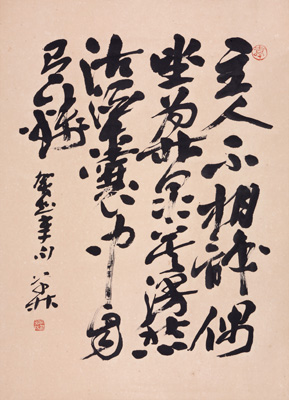 主人不相識偶
坐為林泉莫謾愁
沽酒囊中自
有錢
賀知章